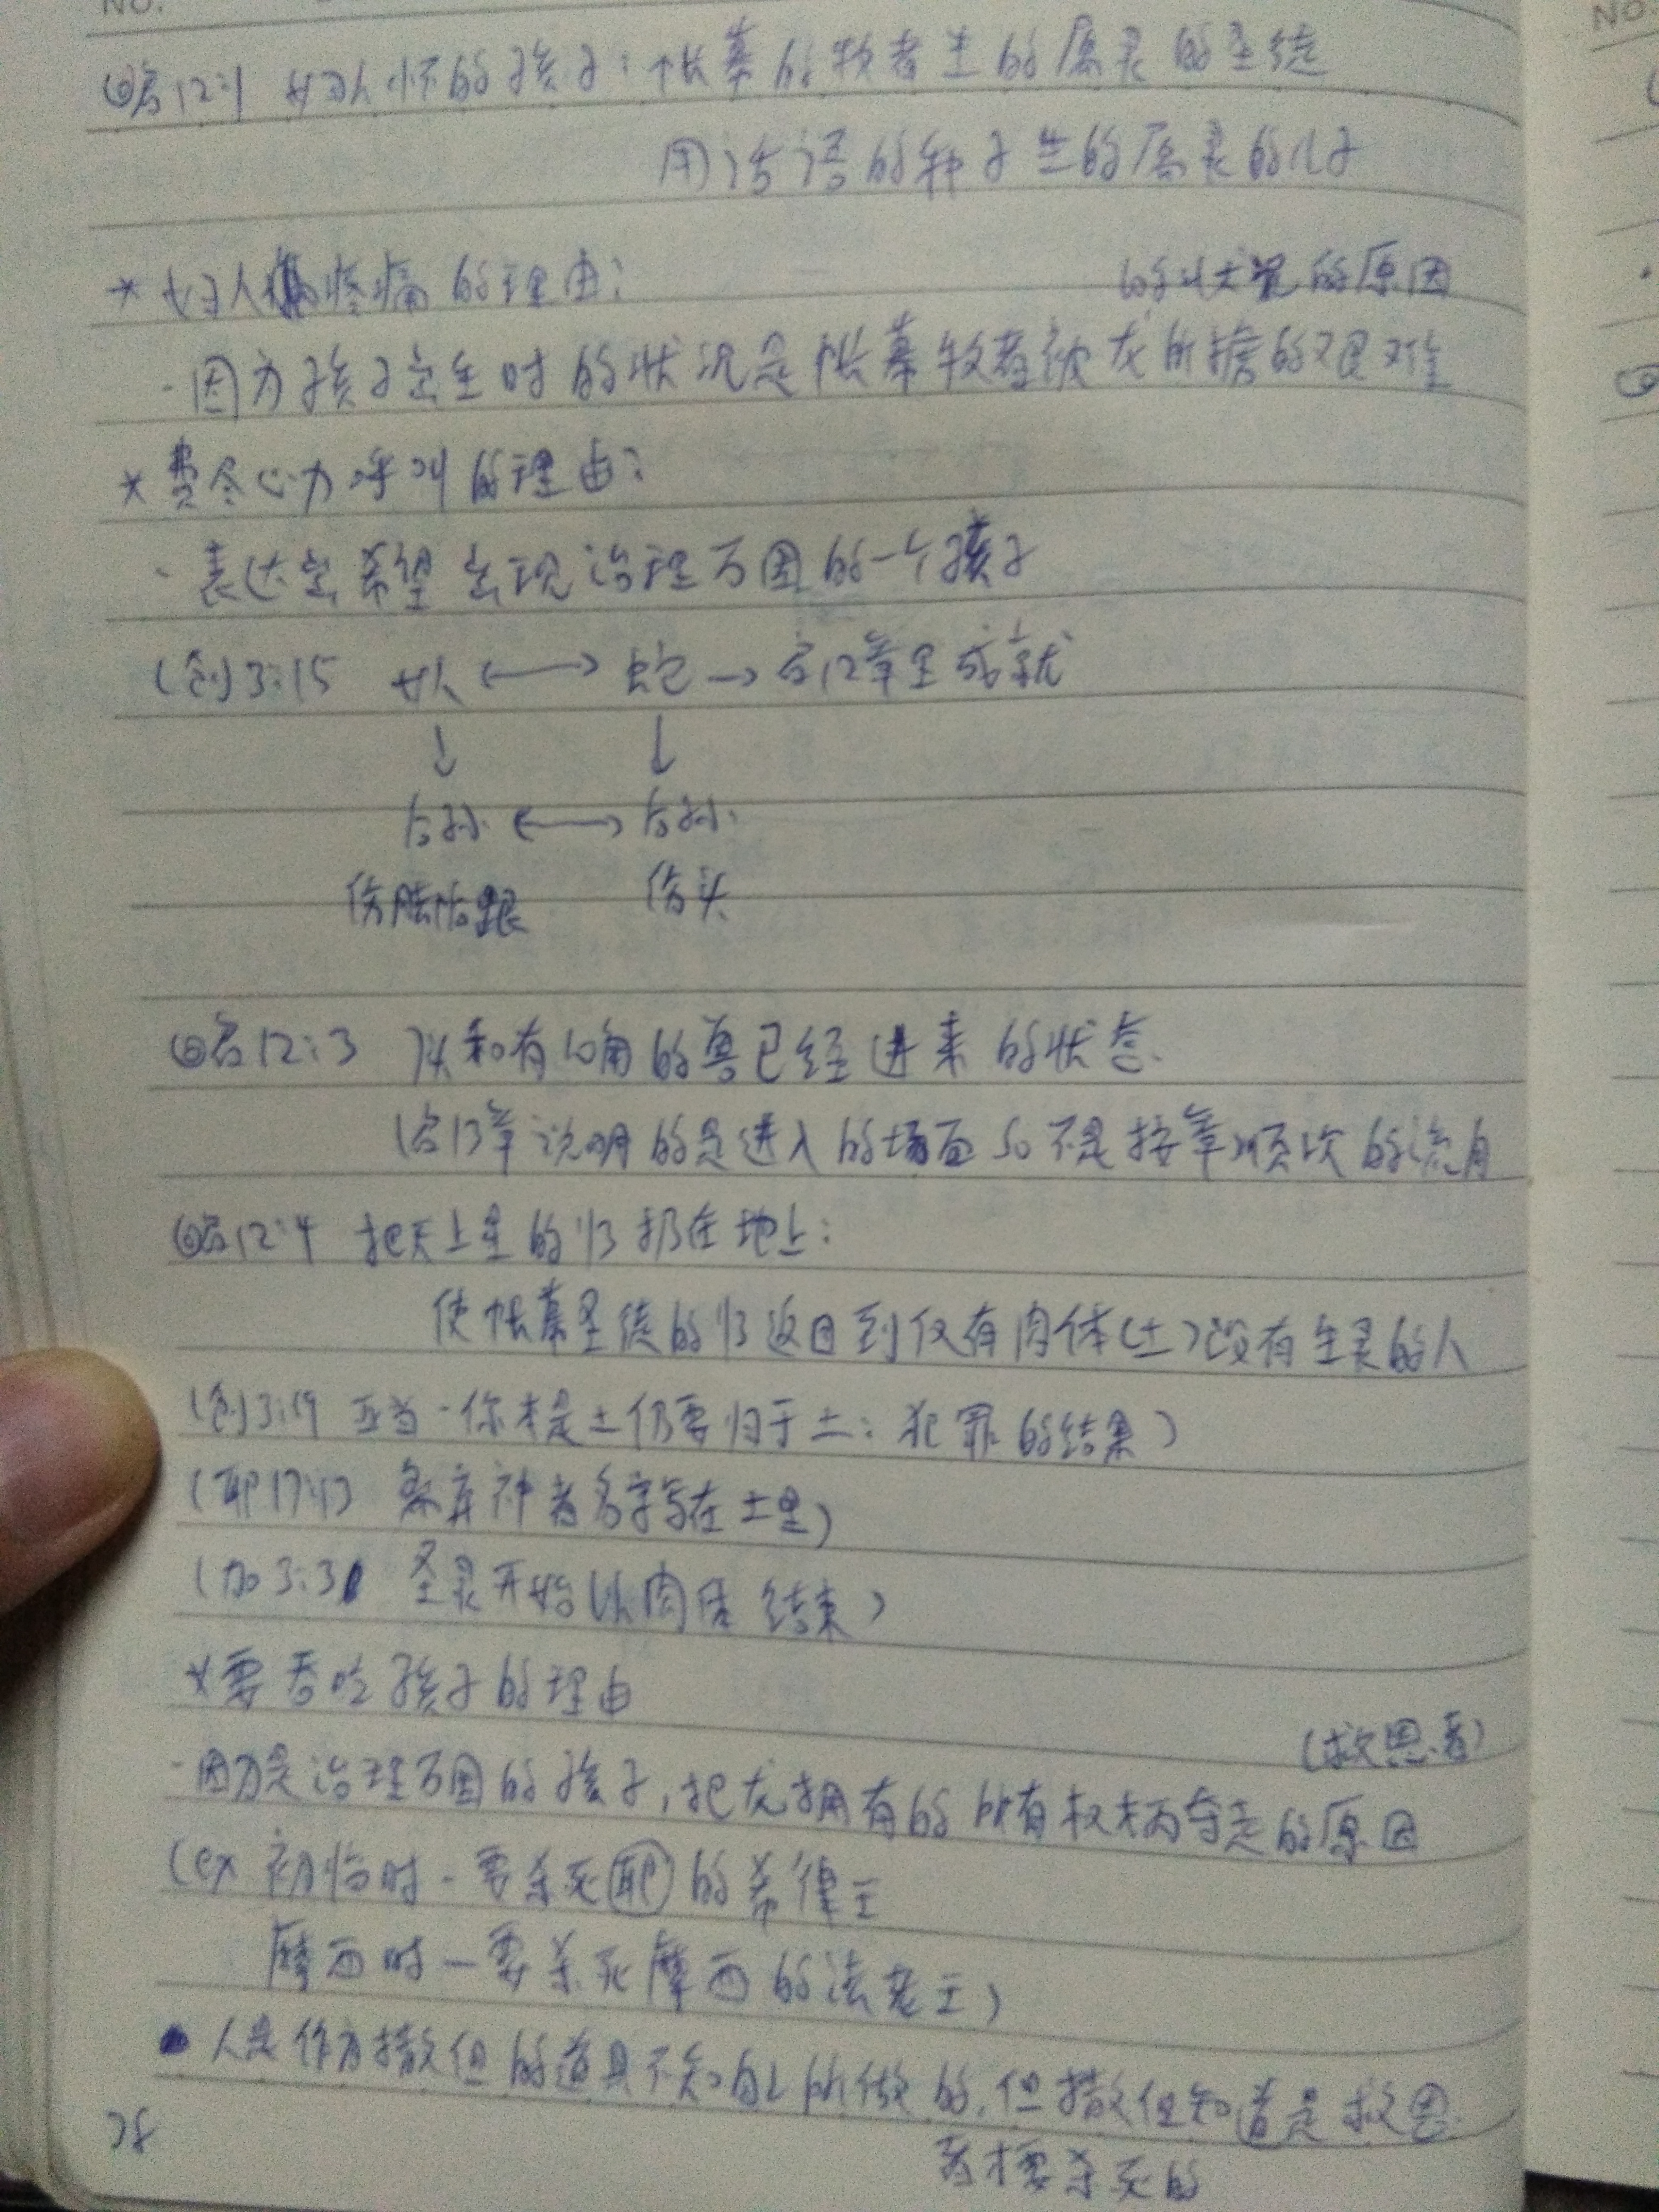 NO.
NO.
◎启12:1 妇人怀的孩子:帐幕的牧者生的属灵的圣徒
用话语的种子生的属灵的儿子
* 妇人疼痛的理由:
的状况的原因
- 因为孩子出生时的状况是帐幕牧者被龙所掳的艰难
* 费尽心力呼叫的理由:
- 表达出希望出现治理万国的一个孩子
(创)3:15 女人 ⟷ 蛇 → 启12章里成就
↓ ↓
后孙 ⟷ 后孙
伤脚后跟 伤头
◎启12:3 7头和有10角的兽已经进来的状态
(启13章说明的是进入的场面 so 不是按章顺次的流向
◎启12:4 把天上星的1/3扔在地上:
使帐幕圣徒的1/3返回到仅有肉体(土)没有生灵的人
(创3:19 亚当-你本是土仍要归于土:犯罪的结果)
(耶17:13 离弃神者名字写在土里)
(加3:3 圣灵开始以肉体结束)
*要吞吃孩子的理由
(救恩者)
-因为是治理万国的孩子,把龙拥有的所有权柄夺走的原因
(ex 初临时-要杀死耶的希律王
摩西时-要杀死摩西的法老王)
• 人是作为撒但的道具不知自己所做的,但撒但知道是救恩
者才要杀死的